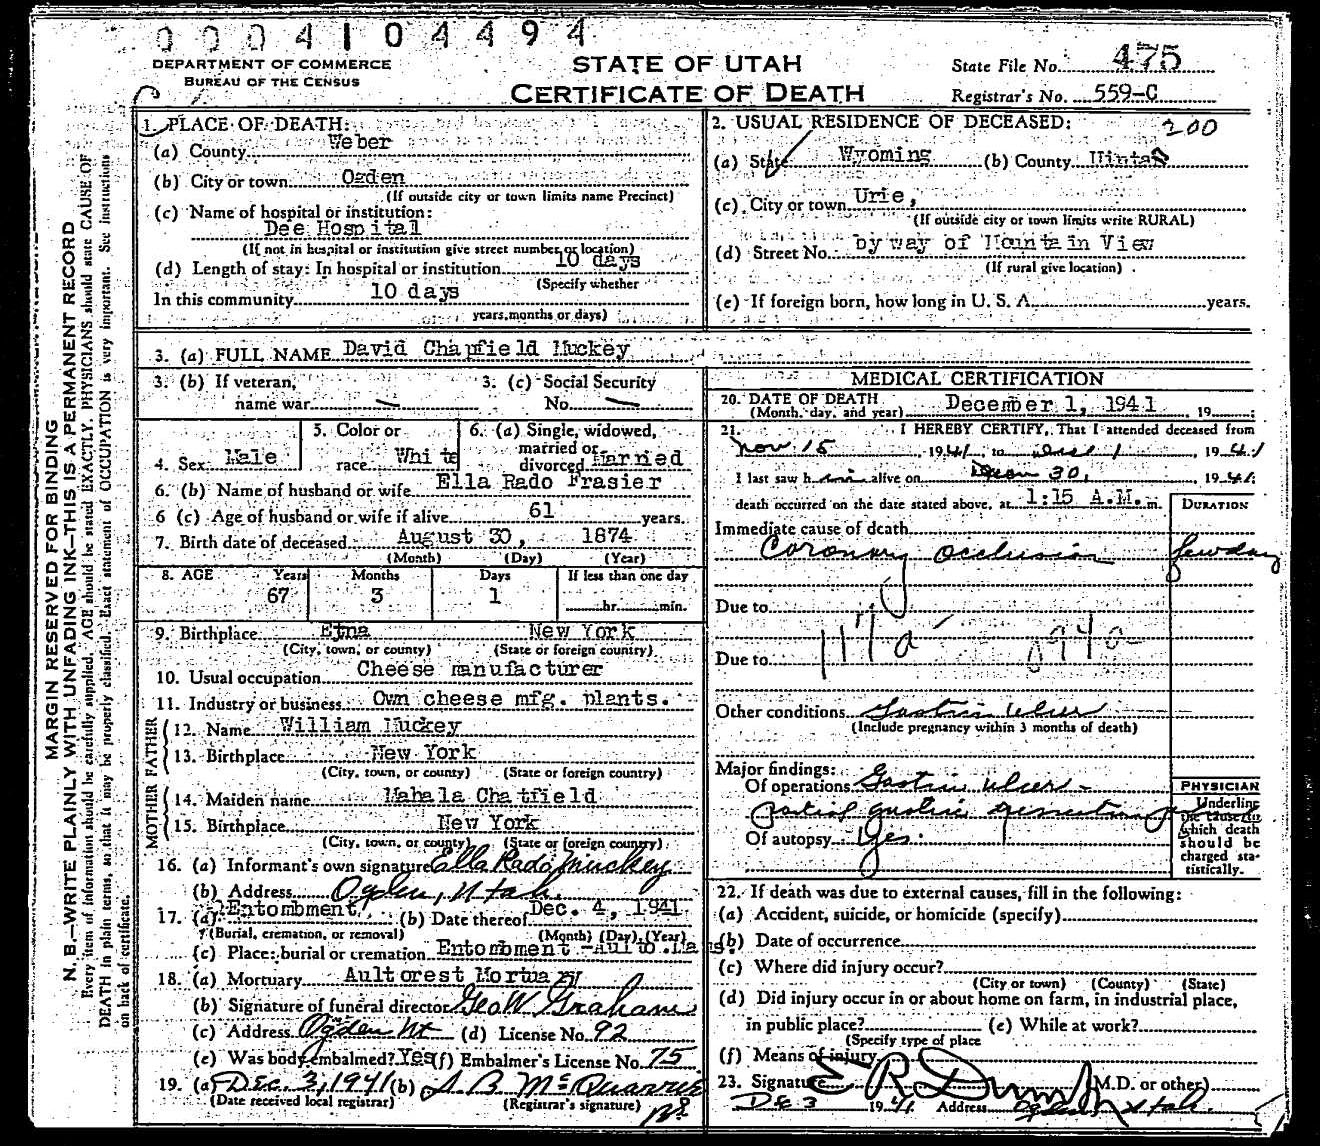 0004104494
DEPARTMENT OF COMMERCE
BUREAU OF THE CENSUS
STATE OF UTAH
CERTIFICATE OF DEATH
State File No. 475
Registrar's No. 559-C
MARGIN RESERVED FOR BINDING
N. B.—WRITE PLAINLY WITH UNFADING INK—THIS IS A PERMANENT RECORD
Every item of information should be carefully supplied. AGE should be stated EXACTLY. PHYSICIANS should state CAUSE OF
DEATH in plain terms, so that it may be properly classified. Exact statement of OCCUPATION is very important. See instructions
on back of certificate.
1. PLACE OF DEATH:
(a) County Weber
(b) City or town Ogden
(If outside city or town limits name Precinct)
(c) Name of hospital or institution:
Dee Hospital
(If not in hospital or institution give street number or location)
(d) Length of stay: In hospital or institution 10 days
(Specify whether
In this community 10 days
years, months or days)
2. USUAL RESIDENCE OF DECEASED: 200
(a) State Wyoming (b) County Uinta
(c) City or town Urie,
(If outside city or town limits write RURAL)
(d) Street No. by way of Mountain View
(If rural give location)
(e) If foreign born, how long in U. S. A. years.
3. (a) FULL NAME David Chapfield Muckey
3. (b) If veteran, name war — 3. (c) Social Security No. —
4. Sex Male 5. Color or race White 6. (a) Single, widowed, married or divorced Married
6. (b) Name of husband or wife Ella Rado Frasier
6 (c) Age of husband or wife if alive 61 years.
7. Birth date of deceased August 30, 1874
(Month) (Day) (Year)
8. AGE Years Months Days If less than one day
67 3 1 hr. min.
9. Birthplace Etna New York
(City, town, or county) (State or foreign country)
10. Usual occupation Cheese manufacturer
11. Industry or business Own cheese mfg. plants.
FATHER
12. Name William Muckey
13. Birthplace New York
(City, town, or county) (State or foreign country)
MOTHER
14. Maiden name Mahala Chatfield
15. Birthplace New York
(City, town, or county) (State or foreign country)
16. (a) Informant's own signature Ella Rado Muckey
(b) Address Ogden, Utah.
17. (a) Entombment (b) Date thereof Dec. 4, 1941
(Burial, cremation, or removal) (Month) (Day) (Year)
(c) Place: burial or cremation Entombment -Ault o.Maus.
18. (a) Mortuary Aultorest Mortuary
(b) Signature of funeral director Geo W. Graham
(c) Address Ogden Ut (d) License No. 92
(e) Was body embalmed? Yes (f) Embalmer's License No. 75
19. (a) Dec. 3, 1941 (b) A. B. McQuarrie
(Date received local registrar) (Registrar's signature)
MEDICAL CERTIFICATION
20. DATE OF DEATH
(Month, day, and year) December 1, 1941, 19
21. I HEREBY CERTIFY, That I attended deceased from
Nov. 15, 1941, to Dec 1, 1941
I last saw him alive on Nov 30, 1941
death occurred on the date stated above, at 1:15 A.M. m.
DURATION
Immediate cause of death
Coronary occlusion few days
Due to
Due to
Other conditions Gastric ulcer
(Include pregnancy within 3 months of death)
Major findings:
Of operations Gastric ulcer -
partial gastric resection
Of autopsy Yes.
PHYSICIAN
Underline
the cause to
which death
should be
charged sta-
tistically.
22. If death was due to external causes, fill in the following:
(a) Accident, suicide, or homicide (specify)
(b) Date of occurrence
(c) Where did injury occur?
(City or town) (County) (State)
(d) Did injury occur in or about home on farm, in industrial place,
in public place? (e) While at work?
(Specify type of place
(f) Means of injury
23. Signature (M.D. or other)
Dec 3 1941 Address Ogden Utah.